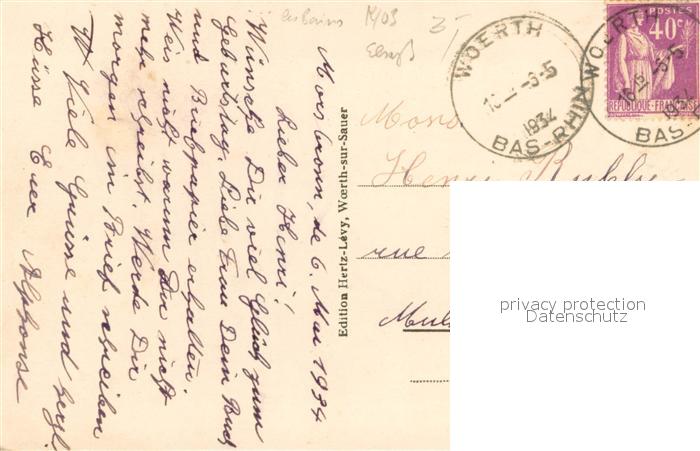 les bains
14/03
WOERTH
16 -6-5
1934
BAS-RHIN
WOERTH
16 15 -6-5
1934
BAS
POSTES
40c
REPUBLIQUE-FRANÇAISE
Morsbronn, de 6. Mai 1934
Lieber Henri!
Wünsche Dir viel Glück zum
Geburtstag. Liebe Frau Dein Buch
und Briefpapier erhalten.
Weis nicht warum Du nicht
mehr schreibst. Werde Dir
morgen im Brief schreiben
Viele Grüsse und herzl.
Küsse Euer Alphonse
Edition Hertz-Lévy, Wœrth-sur-Sauer
Mons
Henri
rue
Mul
privacy protection
Datenschutz